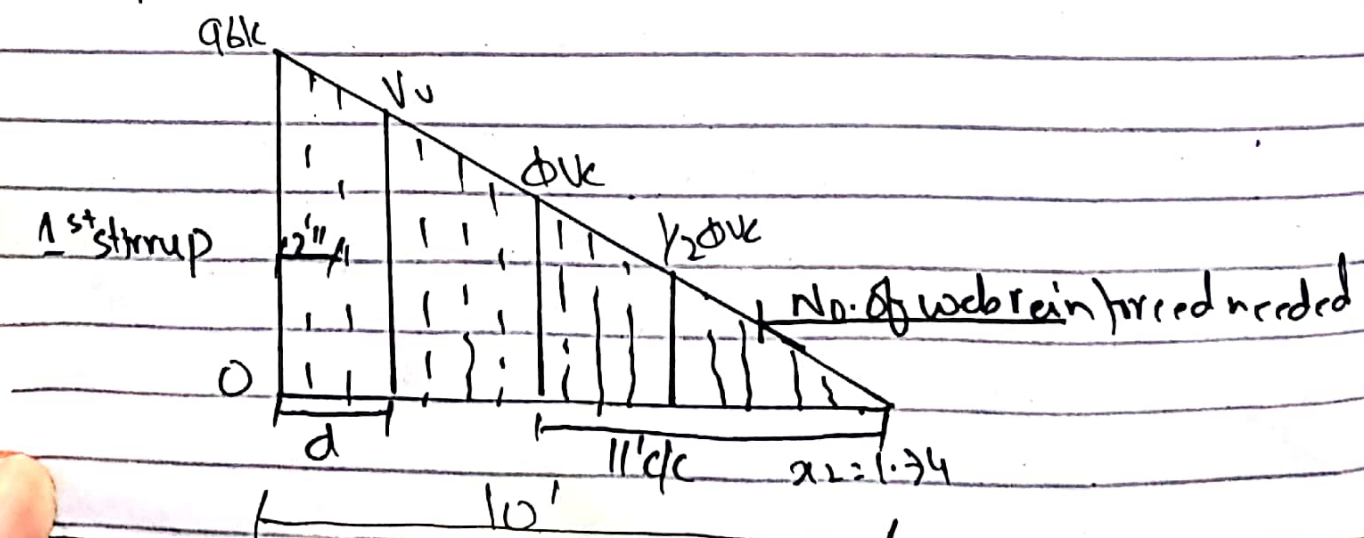 96k
Vu
ΦVc
1st stirrup
2"
1/2ΦVc
No. of web reinforced needed
0
d
11'c/c
x2=1.74
10'